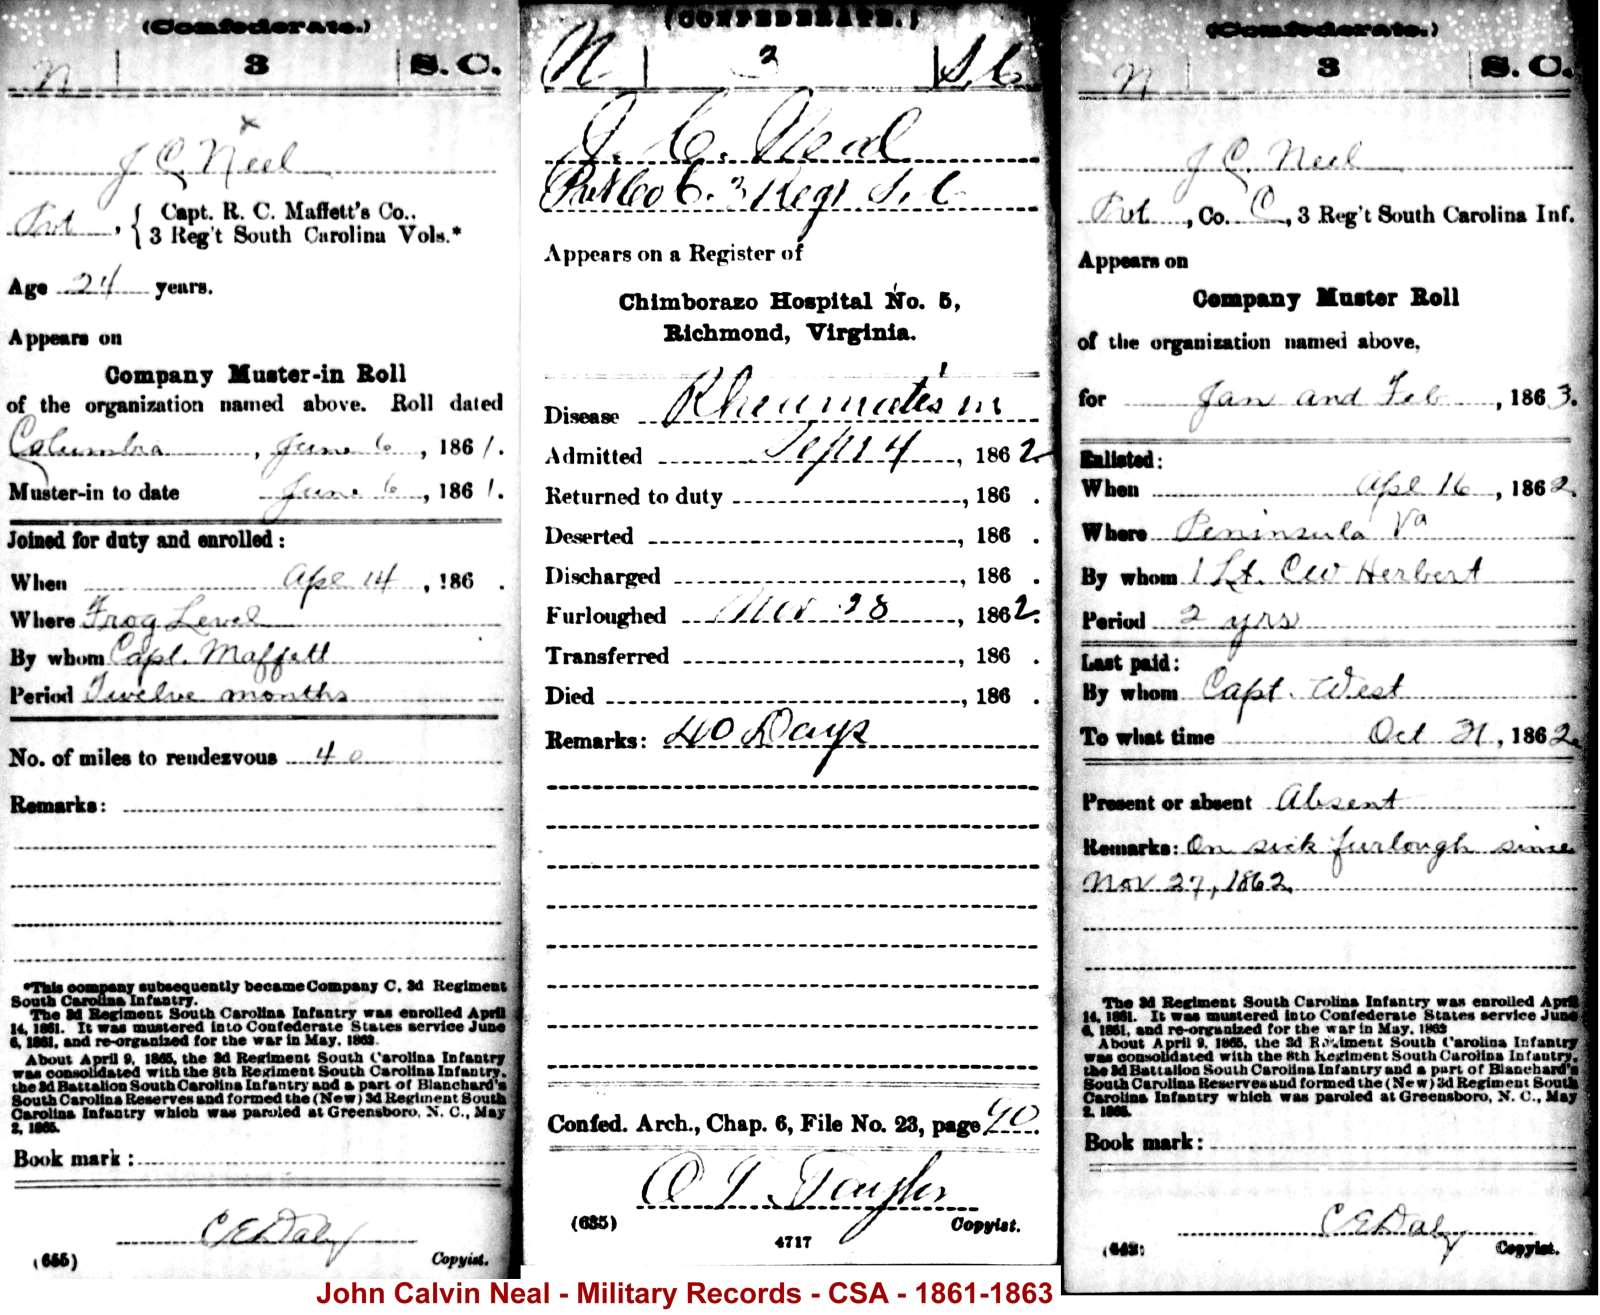 (Confederate.)
N | 3 | S. C.
x
J C Neel
Pvt, { Capt. R. C. Maffett's Co.,
3 Reg't South Carolina Vols.*
Age 24 years.
Appears on
Company Muster-in Roll
of the organization named above. Roll dated
Columbia, June 6, 1861.
Muster-in to date June 6, 1861.
Joined for duty and enrolled:
When Apl 14, 186 .
Where Frog Level
By whom Capt. Maffett
Period Twelve months
No. of miles to rendezvous 40
Remarks:
*This company subsequently became Company C, 3d Regiment
South Carolina Infantry.
The 3d Regiment South Carolina Infantry was enrolled April
14, 1861. It was mustered into Confederate States service June
6, 1861, and re-organized for the war in May, 1862.
About April 9, 1865, the 3d Regiment South Carolina Infantry
was consolidated with the 8th Regiment South Carolina Infantry,
the 3d Battalion South Carolina Infantry and a part of Blanchard's
South Carolina Reserves and formed the (New) 3d Regiment South
Carolina Infantry which was paroled at Greensboro, N. C., May
2, 1865.
Book mark:
C E Daly
(655) Copyist.
(CONFEDERATE.)
N | 3 | S. C
J. C. Neal
Pvt Co C. 3 Regt S. C
Appears on a Register of
Chimborazo Hospital No. 5,
Richmond, Virginia.
Disease Rheumatism
Admitted Sept 4, 1862.
Returned to duty , 186 .
Deserted , 186 .
Discharged , 186 .
Furloughed Nov 28, 1862.
Transferred , 186 .
Died , 186 .
Remarks: 40 Days
Confed. Arch., Chap. 6, File No. 23, page 90.
(635) Copyist.
4717
(Confederate.)
N | 3 | S. C.
J C. Neel
Pvt, Co. C, 3 Reg't South Carolina Inf.
Appears on
Company Muster Roll
of the organization named above,
for Jan and Feb, 1863.
Enlisted:
When Apl 16, 1862.
Where Peninsula Va
By whom 1 Lt. CW Herbert
Period 2 yrs
Last paid:
By whom Capt. West
To what time Oct 31, 1862.
Present or absent Absent
Remarks: On sick furlough since
Nov 27, 1862.
The 3d Regiment South Carolina Infantry was enrolled April
14, 1861. It was mustered into Confederate States service June
6, 1861, and re-organized for the war in May, 1862
About April 9, 1865, the 3d Regiment South Carolina Infantry
was consolidated with the 8th Regiment South Carolina Infantry,
the 3d Battalion South Carolina Infantry and a part of Blanchard's
South Carolina Reserves and formed the (New) 3d Regiment South
Carolina Infantry which was paroled at Greensboro, N. C., May
2, 1865.
Book mark:
C E Daly
(642) Copyist.
John Calvin Neal - Military Records - CSA - 1861-1863